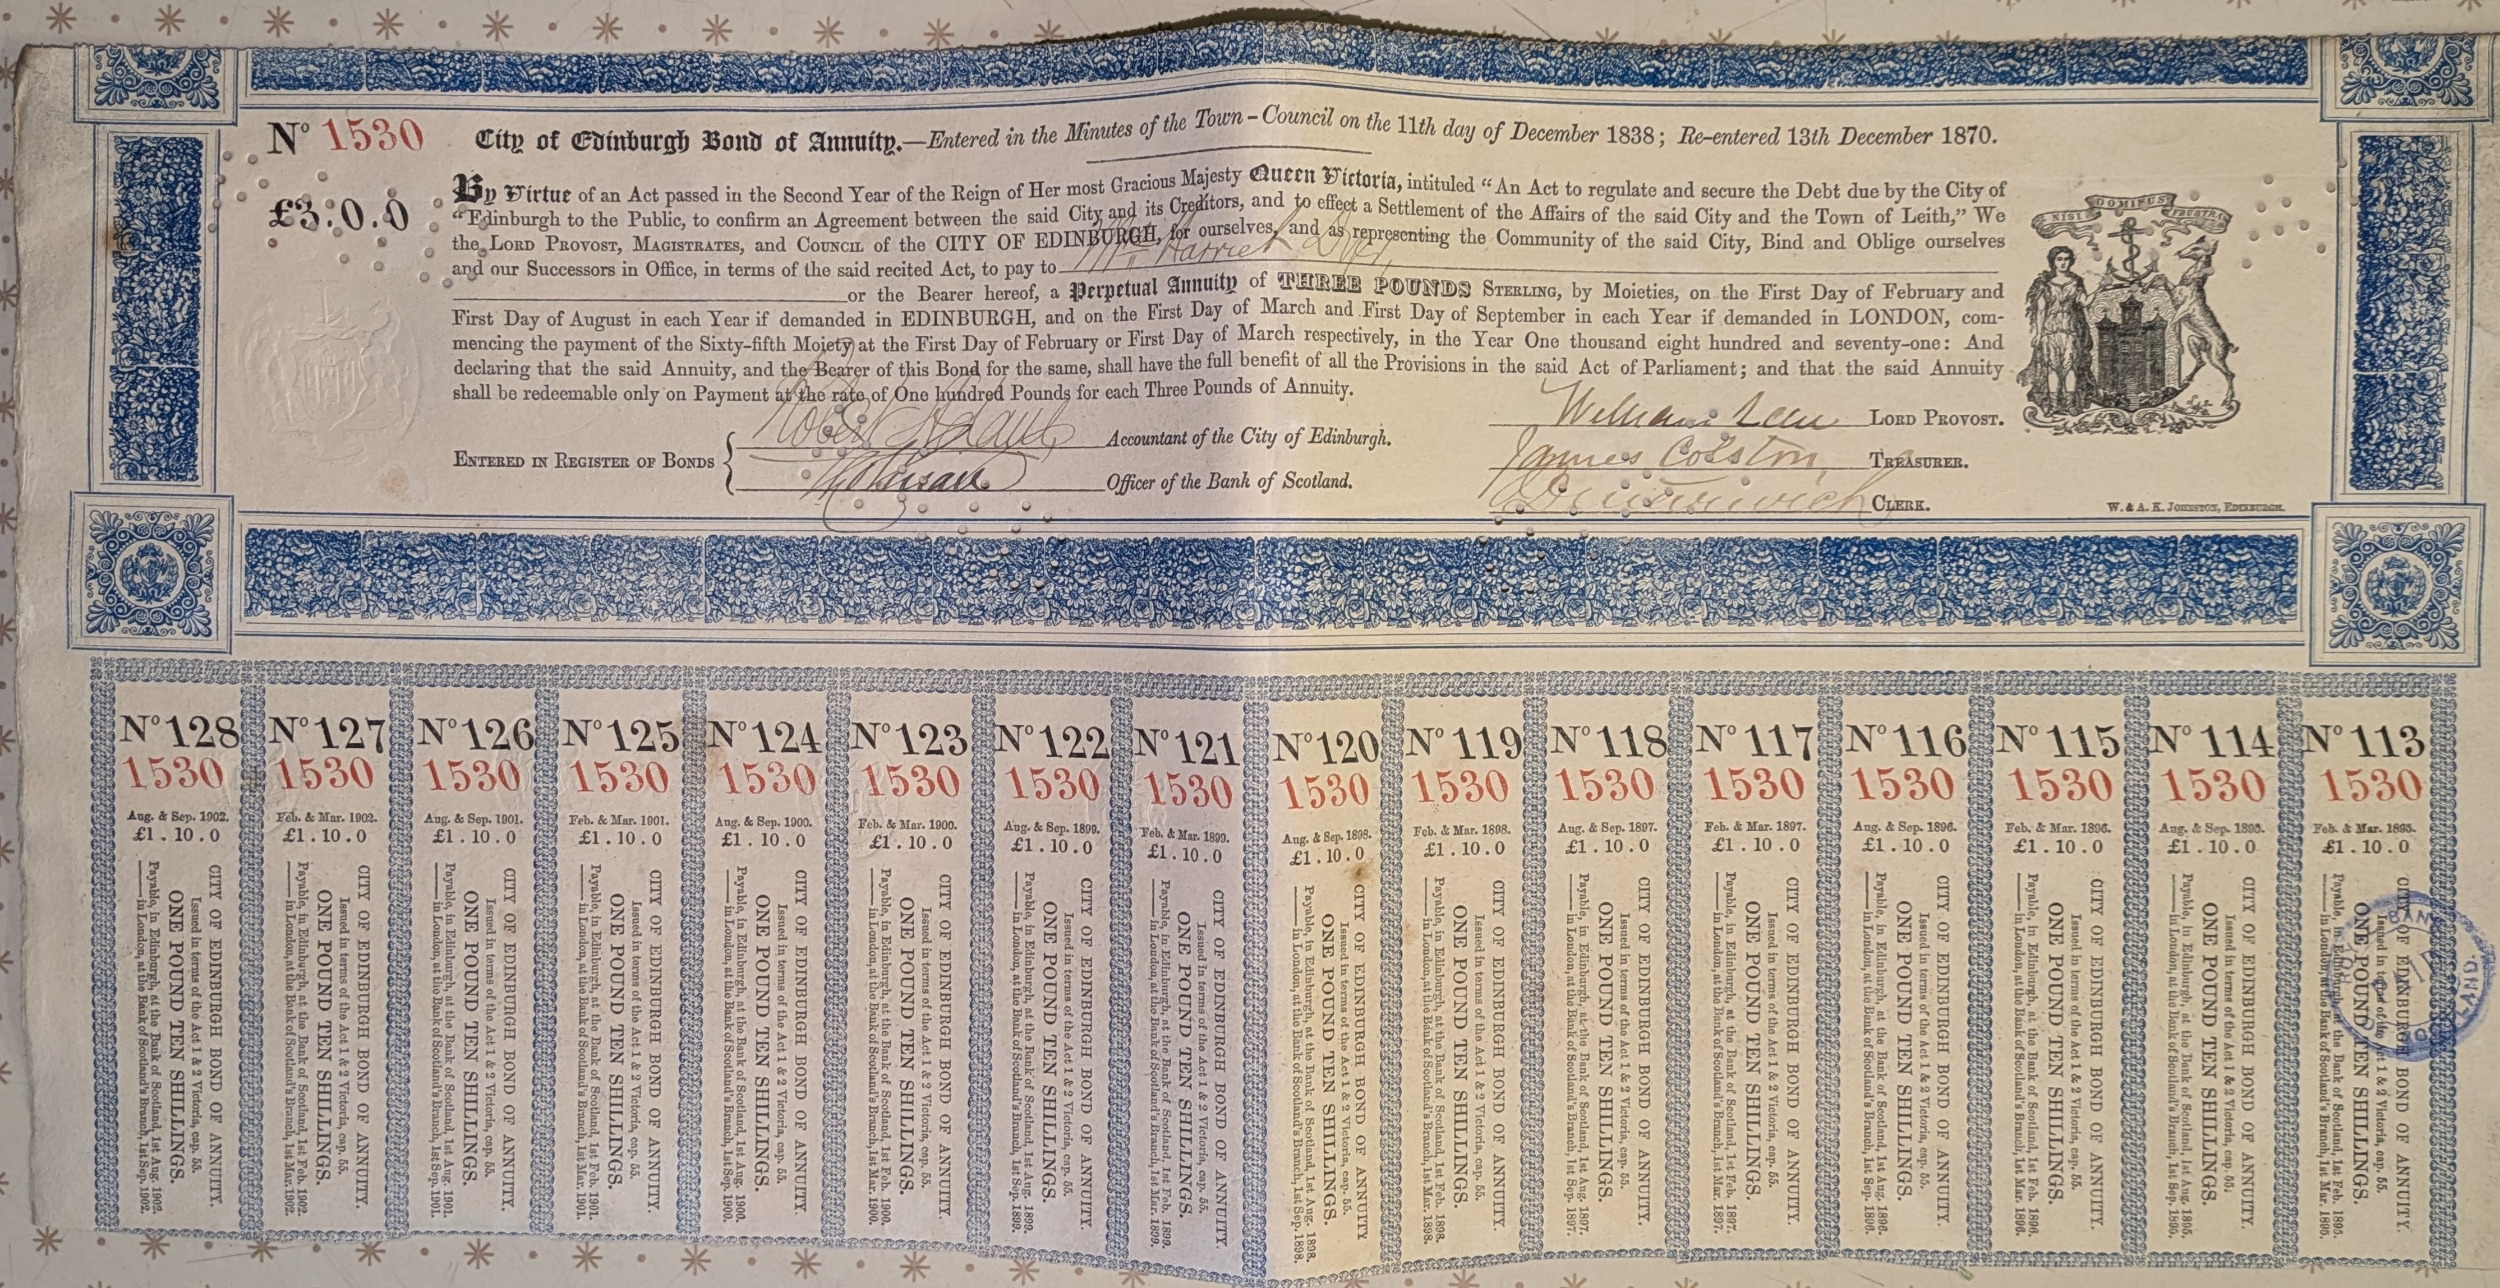 Nº 1530
City of Edinburgh Bond of Annuity.—Entered in the Minutes of the Town-Council on the 11th day of December 1838; Re-entered 13th December 1870.
£3.0.0
By Virtue of an Act passed in the Second Year of the Reign of Her most Gracious Majesty Queen Victoria, intituled “An Act to regulate and secure the Debt due by the City of
“Edinburgh to the Public, to confirm an Agreement between the said City and its Creditors, and to effect a Settlement of the Affairs of the said City and the Town of Leith,” We
the LORD PROVOST, MAGISTRATES, and COUNCIL of the CITY OF EDINBURGH, for ourselves, and as representing the Community of the said City, Bind and Oblige ourselves
and our Successors in Office, in terms of the said recited Act, to pay to Harriet
or the Bearer hereof, a Perpetual Annuity of THREE POUNDS STERLING, by Moieties, on the First Day of February and
First Day of August in each Year if demanded in EDINBURGH, and on the First Day of March and First Day of September in each Year if demanded in LONDON, com-
mencing the payment of the Sixty-fifth Moiety at the First Day of February or First Day of March respectively, in the Year One thousand eight hundred and seventy-one: And
declaring that the said Annuity, and the Bearer of this Bond for the same, shall have the full benefit of all the Provisions in the said Act of Parliament; and that the said Annuity
shall be redeemable only on Payment at the rate of One hundred Pounds for each Three Pounds of Annuity.
NISI DOMINUS FRUSTRA
William Law LORD PROVOST.
Robert Adam Accountant of the City of Edinburgh.
James Colston TREASURER.
ENTERED IN REGISTER OF BONDS
Officer of the Bank of Scotland.
CLERK.
W. & A. K. JOHNSTON, EDINBURGH.
Nº 128
1530
Aug. & Sep. 1902.
£1.10.0
CITY OF EDINBURGH BOND OF ANNUITY.
Issued in terms of the Act 1 & 2 Victoria, cap. 55.
ONE POUND TEN SHILLINGS.
Payable, in Edinburgh, at the Bank of Scotland, 1st Aug. 1902.
— in London, at the Bank of Scotland's Branch, 1st Sep. 1902.
Nº 127
1530
Feb. & Mar. 1902.
£1.10.0
CITY OF EDINBURGH BOND OF ANNUITY.
Issued in terms of the Act 1 & 2 Victoria, cap. 55.
ONE POUND TEN SHILLINGS.
Payable, in Edinburgh, at the Bank of Scotland, 1st Feb. 1902.
— in London, at the Bank of Scotland's Branch, 1st Mar. 1902.
Nº 126
1530
Aug. & Sep. 1901.
£1.10.0
CITY OF EDINBURGH BOND OF ANNUITY.
Issued in terms of the Act 1 & 2 Victoria, cap. 55.
ONE POUND TEN SHILLINGS.
Payable, in Edinburgh, at the Bank of Scotland, 1st Aug. 1901.
— in London, at the Bank of Scotland's Branch, 1st Sep. 1901.
Nº 125
1530
Feb. & Mar. 1901.
£1.10.0
CITY OF EDINBURGH BOND OF ANNUITY.
Issued in terms of the Act 1 & 2 Victoria, cap. 55.
ONE POUND TEN SHILLINGS.
Payable, in Edinburgh, at the Bank of Scotland, 1st Feb. 1901.
— in London, at the Bank of Scotland's Branch, 1st Mar. 1901.
Nº 124
1530
Aug. & Sep. 1900.
£1.10.0
CITY OF EDINBURGH BOND OF ANNUITY.
Issued in terms of the Act 1 & 2 Victoria, cap. 55.
ONE POUND TEN SHILLINGS.
Payable, in Edinburgh, at the Bank of Scotland, 1st Aug. 1900.
— in London, at the Bank of Scotland's Branch, 1st Sep. 1900.
Nº 123
1530
Feb. & Mar. 1900.
£1.10.0
CITY OF EDINBURGH BOND OF ANNUITY.
Issued in terms of the Act 1 & 2 Victoria, cap. 55.
ONE POUND TEN SHILLINGS.
Payable, in Edinburgh, at the Bank of Scotland, 1st Feb. 1900.
— in London, at the Bank of Scotland's Branch, 1st Mar. 1900.
Nº 122
1530
Aug. & Sep. 1899.
£1.10.0
CITY OF EDINBURGH BOND OF ANNUITY.
Issued in terms of the Act 1 & 2 Victoria, cap. 55.
ONE POUND TEN SHILLINGS.
Payable, in Edinburgh, at the Bank of Scotland, 1st Aug. 1899.
— in London, at the Bank of Scotland's Branch, 1st Sep. 1899.
Nº 121
1530
Feb. & Mar. 1899.
£1.10.0
CITY OF EDINBURGH BOND OF ANNUITY.
Issued in terms of the Act 1 & 2 Victoria, cap. 55.
ONE POUND TEN SHILLINGS.
Payable, in Edinburgh, at the Bank of Scotland, 1st Feb. 1899.
— in London, at the Bank of Scotland's Branch, 1st Mar. 1899.
Nº 120
1530
Aug. & Sep. 1898.
£1.10.0
CITY OF EDINBURGH BOND OF ANNUITY
Issued in terms of the Act 1 & 2 Victoria, cap. 55.
ONE POUND TEN SHILLINGS.
Payable, in Edinburgh, at the Bank of Scotland, 1st Aug. 1898.
— in London, at the Bank of Scotland's Branch, 1st Sep. 1898.
Nº 119
1530
Feb. & Mar. 1898.
£1.10.0
CITY OF EDINBURGH BOND OF ANNUITY.
Issued in terms of the Act 1 & 2 Victoria, cap. 55.
ONE POUND TEN SHILLINGS.
Payable, in Edinburgh, at the Bank of Scotland, 1st Feb. 1898.
— in London, at the Bank of Scotland's Branch, 1st Mar. 1898.
Nº 118
1530
Aug. & Sep. 1897.
£1.10.0
CITY OF EDINBURGH BOND OF ANNUITY.
Issued in terms of the Act 1 & 2 Victoria, cap. 55.
ONE POUND TEN SHILLINGS.
Payable, in Edinburgh, at the Bank of Scotland, 1st Aug. 1897.
— in London, at the Bank of Scotland's Branch, 1st Sep. 1897.
Nº 117
1530
Feb. & Mar. 1897.
£1.10.0
CITY OF EDINBURGH BOND OF ANNUITY.
Issued in terms of the Act 1 & 2 Victoria, cap. 55.
ONE POUND TEN SHILLINGS.
Payable, in Edinburgh, at the Bank of Scotland, 1st Feb. 1897.
— in London, at the Bank of Scotland's Branch, 1st Mar. 1897.
Nº 116
1530
Aug. & Sep. 1896.
£1.10.0
CITY OF EDINBURGH BOND OF ANNUITY.
Issued in terms of the Act 1 & 2 Victoria, cap. 55.
ONE POUND TEN SHILLINGS.
Payable, in Edinburgh, at the Bank of Scotland, 1st Aug. 1896.
— in London, at the Bank of Scotland's Branch, 1st Sep. 1896.
Nº 115
1530
Feb. & Mar. 1896.
£1.10.0
CITY OF EDINBURGH BOND OF ANNUITY.
Issued in terms of the Act 1 & 2 Victoria, cap. 55.
ONE POUND TEN SHILLINGS.
Payable, in Edinburgh, at the Bank of Scotland, 1st Feb. 1896.
— in London, at the Bank of Scotland's Branch, 1st Mar. 1896.
Nº 114
1530
Aug. & Sep. 1895.
£1.10.0
CITY OF EDINBURGH BOND OF ANNUITY.
Issued in terms of the Act 1 & 2 Victoria, cap. 55.
ONE POUND TEN SHILLINGS.
Payable, in Edinburgh, at the Bank of Scotland, 1st Aug. 1895.
— in London, at the Bank of Scotland's Branch, 1st Sep. 1895.
Nº 113
1530
Feb. & Mar. 1895.
£1.10.0
CITY OF EDINBURGH BOND OF ANNUITY.
Issued in terms of the Act 1 & 2 Victoria, cap. 55.
ONE POUND TEN SHILLINGS.
Payable, in Edinburgh, at the Bank of Scotland, 1st Feb. 1895.
— in London, at the Bank of Scotland's Branch, 1st Mar. 1895.
BANK